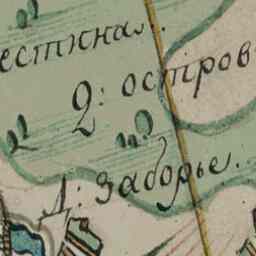 есткна.
2: остров
Д: заборье.